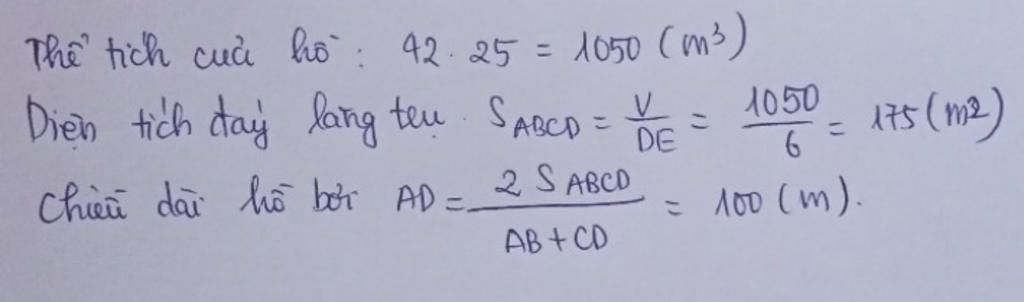 Thể tích của hồ : 42 . 25 = 1050 (m³)
Diện tích đáy lăng trụ . S_ABCD = V/DE = 1050/6 = 175 (m²)
Chiều dài hồ bơi AD = 2 S_ABCD/(AB + CD) = 100 (m).